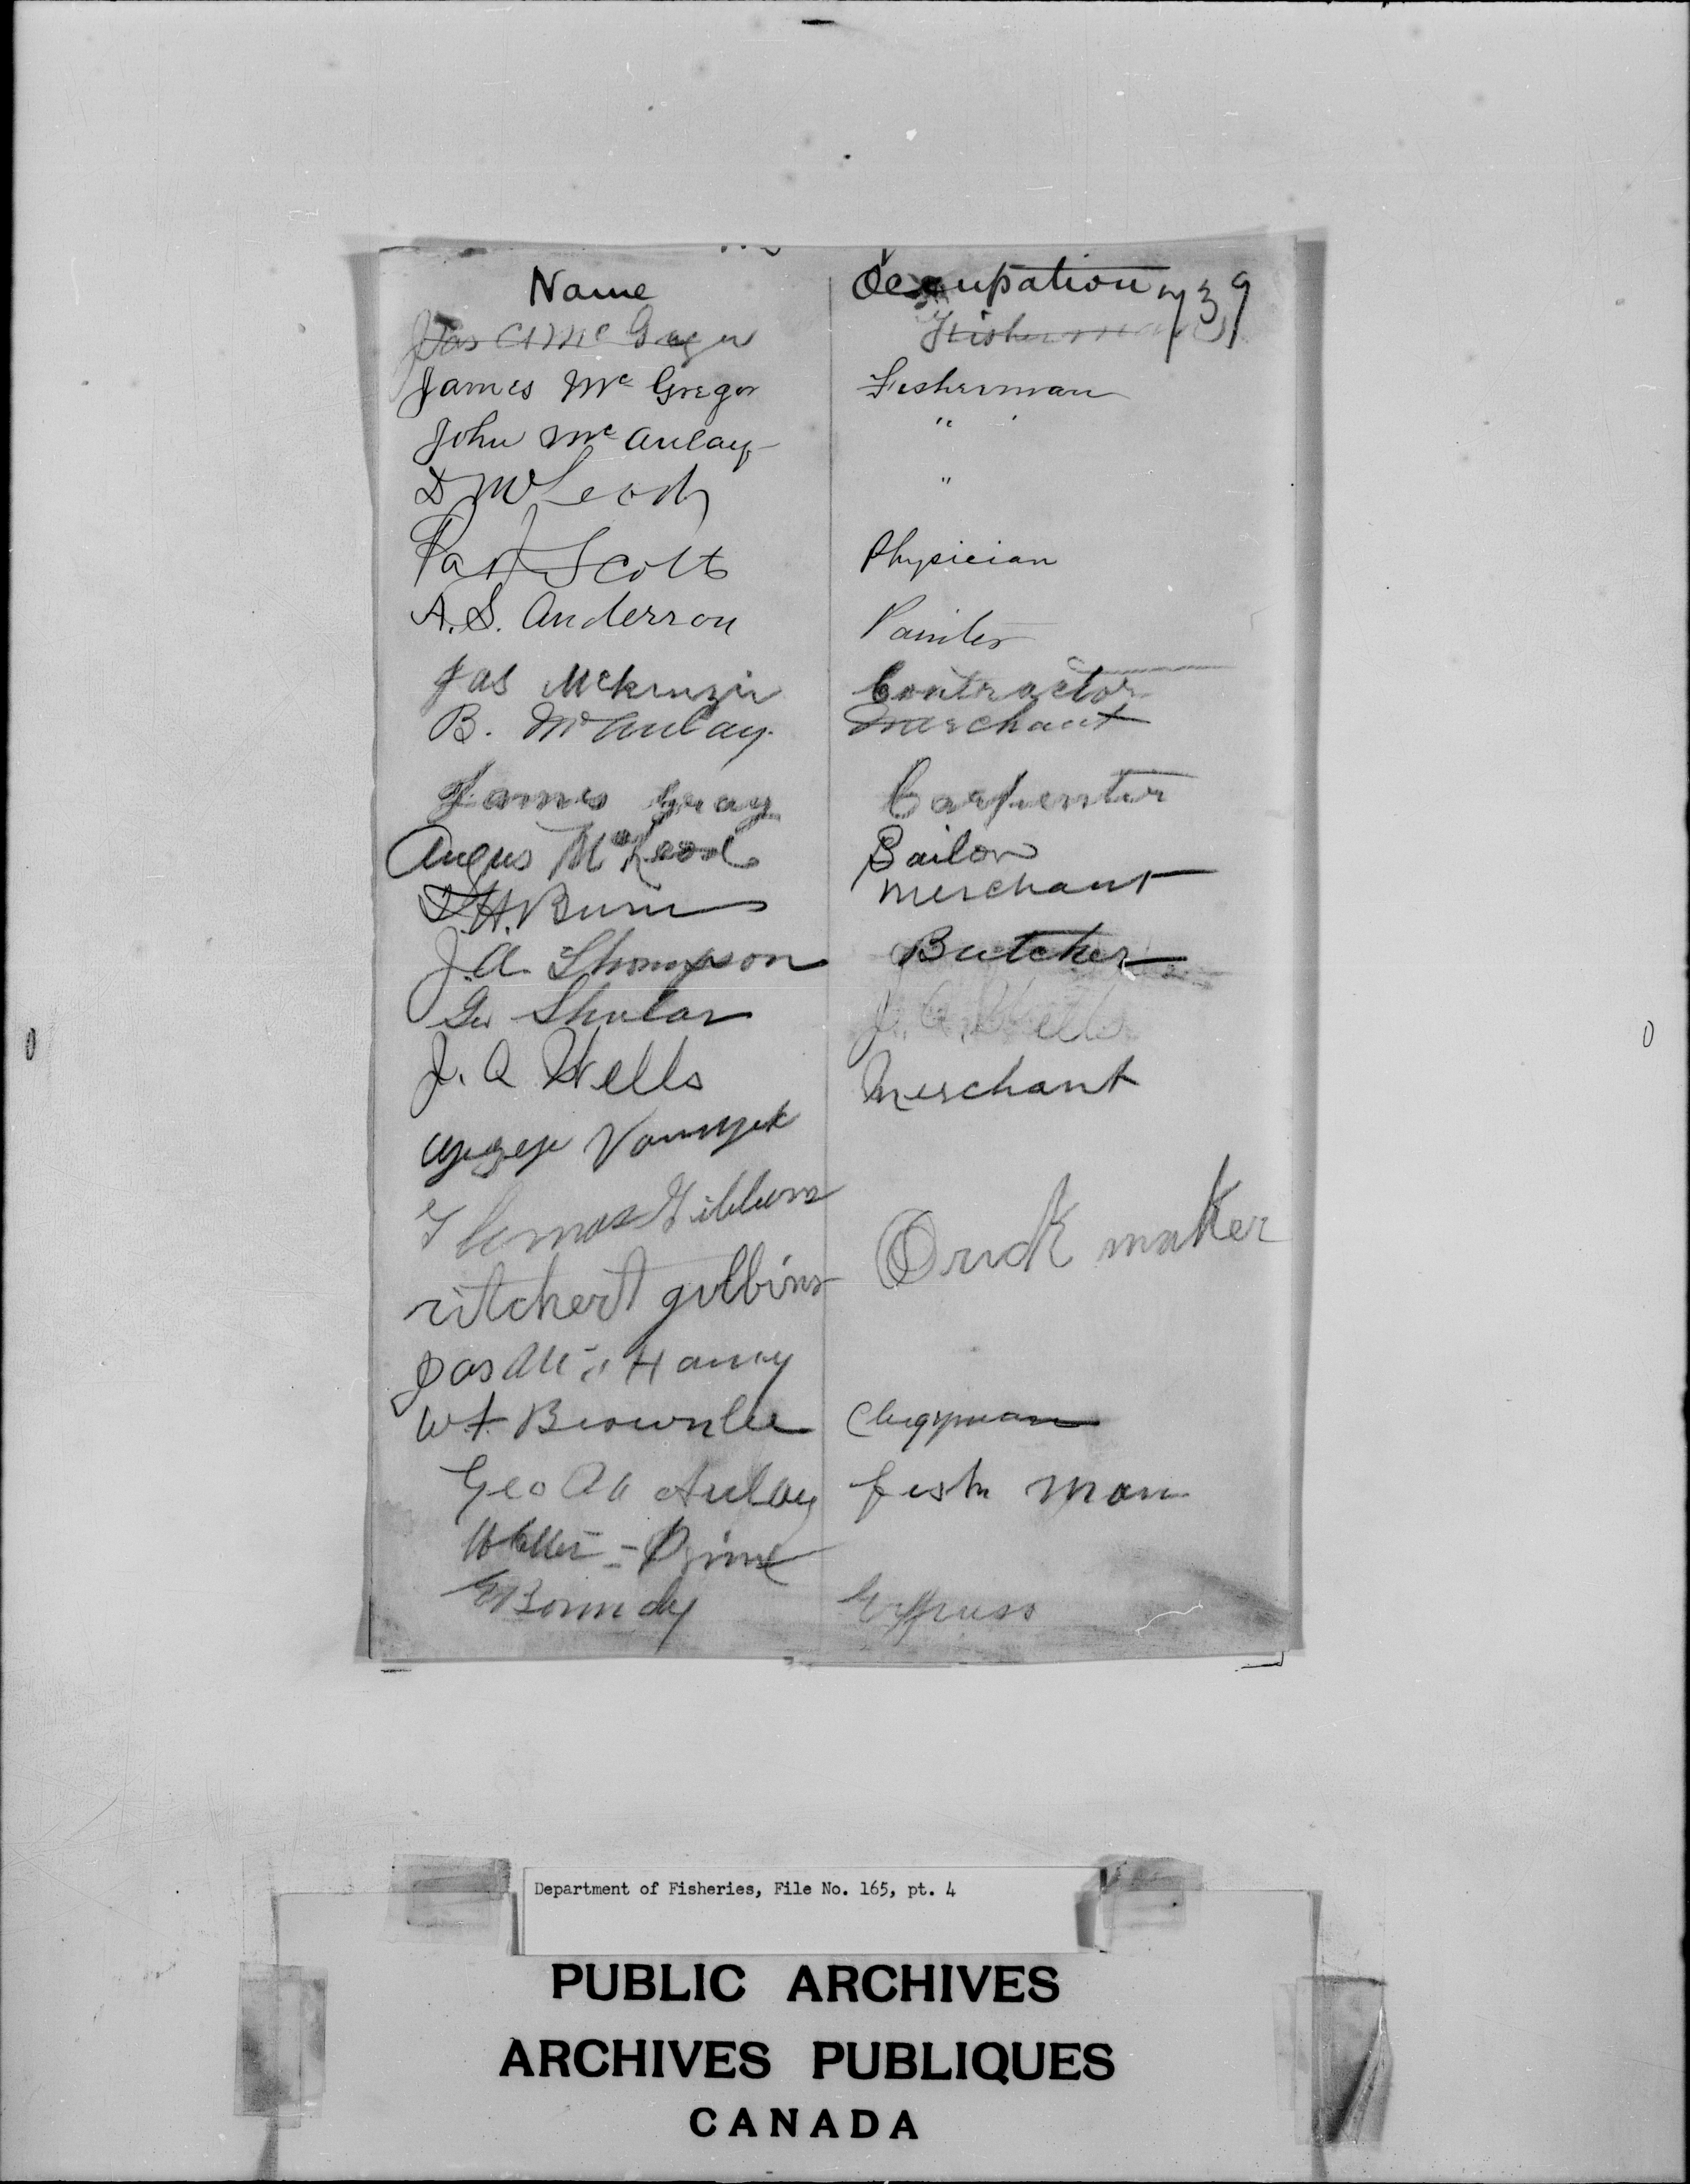 Name Occupation 739
Jas A Mc Gregor Fisherman
James Mc Gregor Fisherman
John Mc Aulay "
D McLeod "
Scott Physician
A. S. Anderson Painter
Jas McKenzie Contractor
B. McAulay. Merchant
James Gray Carpenter
Angus McLeod Sailor
H. Burns Merchant
J. A. Thompson Butcher
Geo Shular J. A. Wells
J. A Wells Merchant
Thomas Gibbins
ritchert gibbins maker
Jas Mc Haney
W. Brownlee Clergyman
Geo Aulay fish man
Boundy Express
Department of Fisheries, File No. 165, pt. 4
PUBLIC ARCHIVES
ARCHIVES PUBLIQUES
CANADA